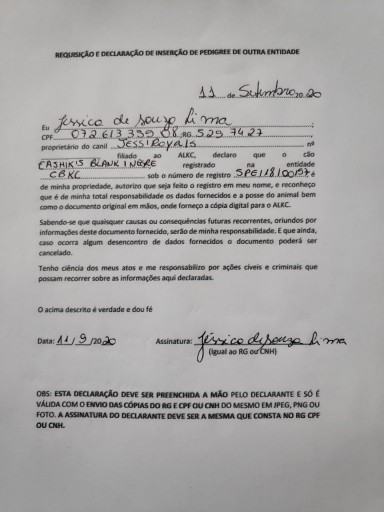 REQUISIÇÃO E DECLARAÇÃO DE INSERÇÃO DE PEDIGREE DE OUTRA ENTIDADE
11 de Setembro 2020
Eu Jessica de souza Lima
CPF 072.613.359.08 RG 529 7427
proprietário do canil JESSIROYALS nº
filiado ao ALKC, declaro que o cão
CASHIK'S BLANK INGRE registrado na entidade
CBKC sob o número de registro SPE/18/00157 é
de minha propriedade, autorizo que seja feito o registro em meu nome, e reconheço
que é de minha total responsabilidade os dados fornecidos e a posse do animal bem
como o documento original em mãos, onde forneço a cópia digital para o ALKC.
Sabendo-se que quaisquer causas ou consequências futuras recorrentes, oriundos por
informações deste documento fornecido, serão de minha responsabilidade. E que ainda,
caso ocorra algum desencontro de dados fornecidos o documento poderá ser
cancelado.
Tenho ciência dos meus atos e me responsabilizo por ações cíveis e criminais que
possam recorrer sobre as informações aqui declaradas.
O acima descrito é verdade e dou fé
Data: 11/9/2020 Assinatura: Jéssica de souza Lima
(igual ao RG ou CNH)
OBS: ESTA DECLARAÇÃO DEVE SER PREENCHIDA A MÃO PELO DECLARANTE E SÓ É
VÁLIDA COM O ENVIO DAS CÓPIAS DO RG E CPF OU CNH DO MESMO EM JPEG, PNG OU
FOTO. A ASSINATURA DO DECLARANTE DEVE SER A MESMA QUE CONSTA NO RG CPF
OU CNH.